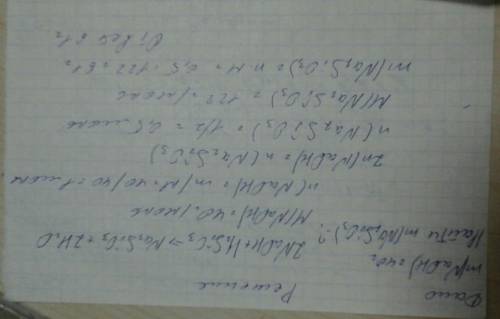 Дано
m(NaOH)=40г
Найти m(Na₂SiO₃)-?
Решение
2NaOH+H₂SiO₃→Na₂SiO₃+2H₂O
M(NaOH)=40г/моль
n(NaOH)=m/M=40/40=1моль
2n(NaOH)=n(Na₂SiO₃)
n(Na₂SiO₃)=1/2=0,5моль
M(Na₂SiO₃)=122г/моль
m(Na₂SiO₃)=n·M=0,5·122=61г
Ответ 61г